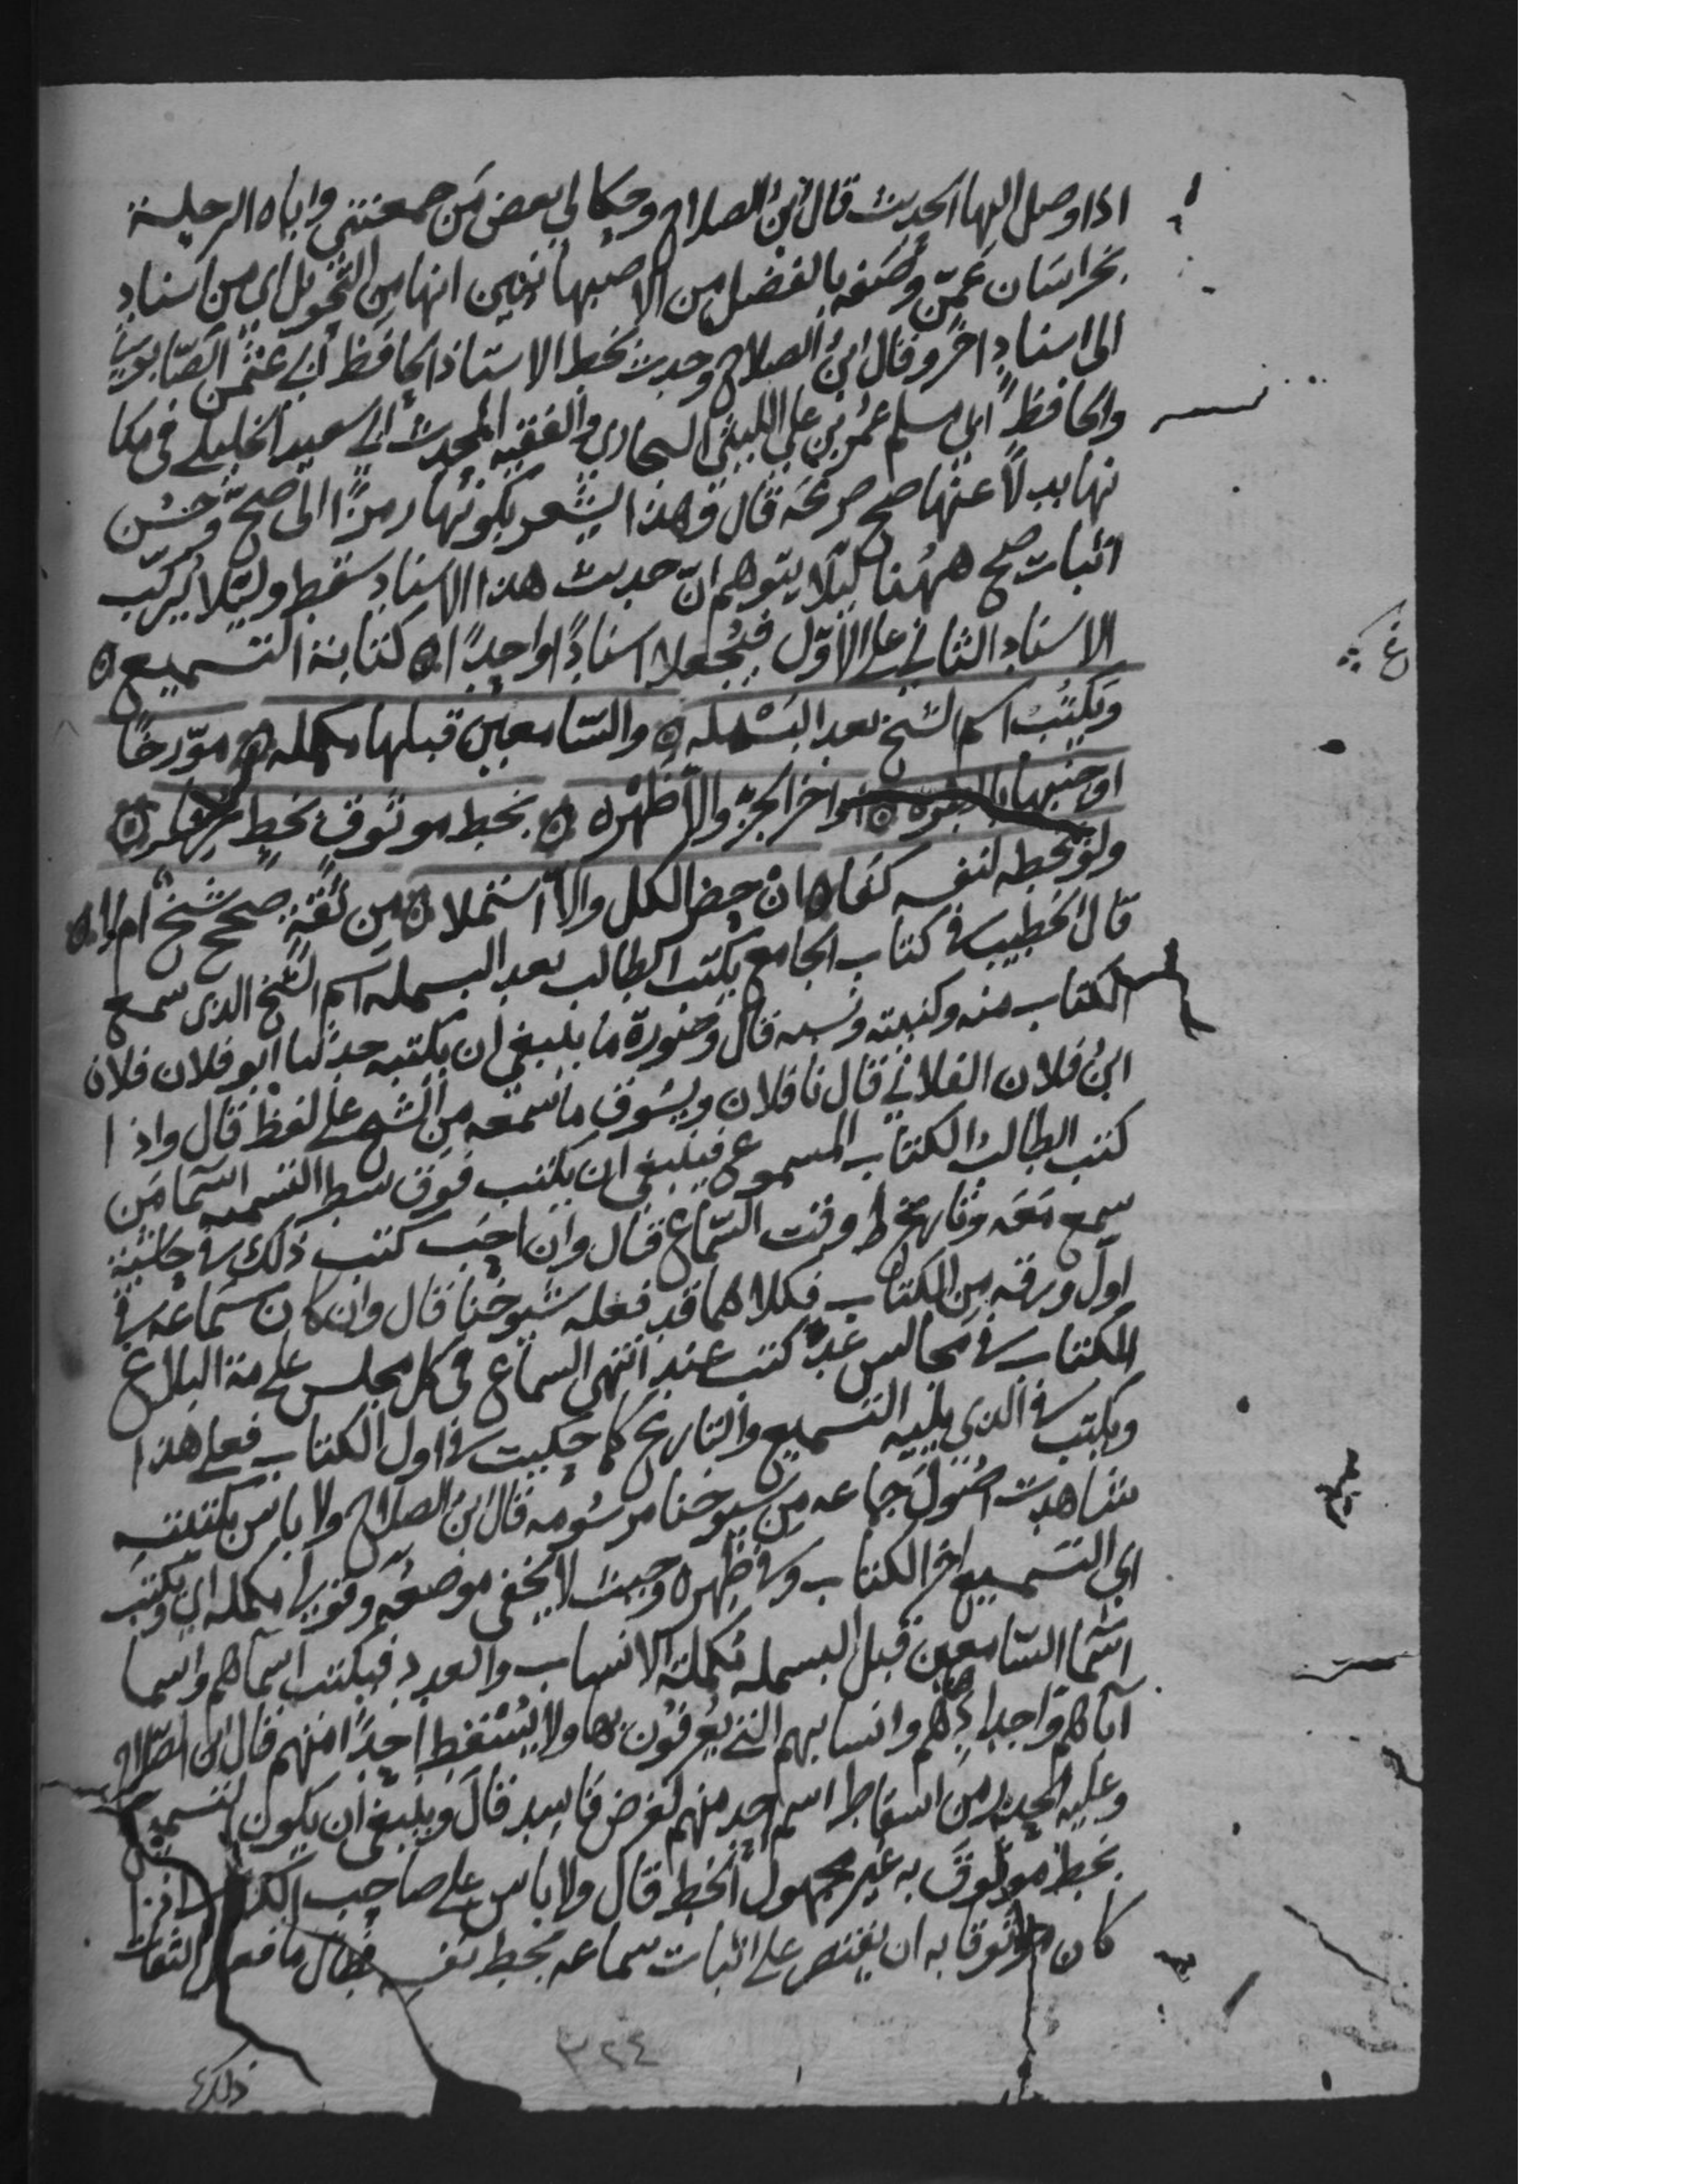 اذا وصل اليها الحديث قال ابن الصلاح وحكا لي بعض من جمعتني واياه الرحلة
بخراسان عمن وصفه بالفضل من الاصبهانيين انها من التحويل اي من اسناد
الى اسناد اخر وقال ابن الصلاح وجدت بخط الاستاذ الحافظ ابي عثمن الصابوني
والحافظ ابي مسلم عمر بن علي الليثي البخاري والفقيه المحدث ابي سعيد الخليلي في مكا
نها بدلا عنها صح صريحه قال وهذا يشعر بكونها رمزا الى صح وحسن
اثبات صح ههنا ليلا يتوهم ان حديث هذا الاسناد سقط وليلا يركب
الاسناد الثاني على الاول فيجعلا اسنادا واحدا ۞ كتابة التسميع ۞
ويكتب اسم الشيخ بعد البسمله ۞ والسامعين قبلها مكمله ۞ مورخا
او جنبها بالطره ۞ او اخر الجزء والا ظهره ۞ بخط موثوق بخط عرفا ۞
ولو بخطه لنفسه كفا ۞ ان حضر الكل والا استملا ۞ من ثقة صحح شيخ ام لا ۞
قال الخطيب في كتاب الجامع يكتب الطالب بعد البسمله اسم الشيخ الذي سمع
الكتاب منه وكنيته ونسبه قال وصورة ما ينبغي ان يكتبه حدثنا ابو فلان فلان
ابن فلان الفلاني قال نا فلان ويسوق ما سمعه من الشيخ على لفظه قال واذا
كتب الطالب الكتاب المسموع فينبغي ان يكتب فوق سطر التسميه اسما من
سمع معه وتاريخ وقت السماع قال وان احب كتب ذلك في حاشية
اول ورقه من الكتاب فكلاهما قد فعله شيوخنا قال وان كان سماعه في
الكتاب في مجالس عدة كتب عند انتهى السماع في كل مجلس علامة البلاغ
ويكتب في الذي يليه التسميع والتاريخ كما حكيت في اول الكتاب فعلى هذا
شاهدت اصول جماعه من شيوخنا مرسومه قال ابن الصلاح ولا باس بكتبته
اي التسميع اخر الكتاب وفي ظهره وحيث لا يخفى موضعه وقولي مكمله اي ويكتب
اسما السامعين قبل البسمله مكملة الانساب والعدد فيكتب اسماهم واسما
اباهم واجدادهم وانسابهم التي يعرفون بها ولا يسقط احدا منهم قال ابن الصلاح
وعليه الحذر من اسقاط اسم احد منهم لغرض فاسد قال وينبغي ان يكون التسميع
بخط موثوق به غير مجهول الخط قال ولا باس على صاحب الكتاب اذا
كان موثوقا به ان يقتصر على اثبات سماعه بخط نفسه فطال ما فعل الثقات
ذلك
٣٢٤